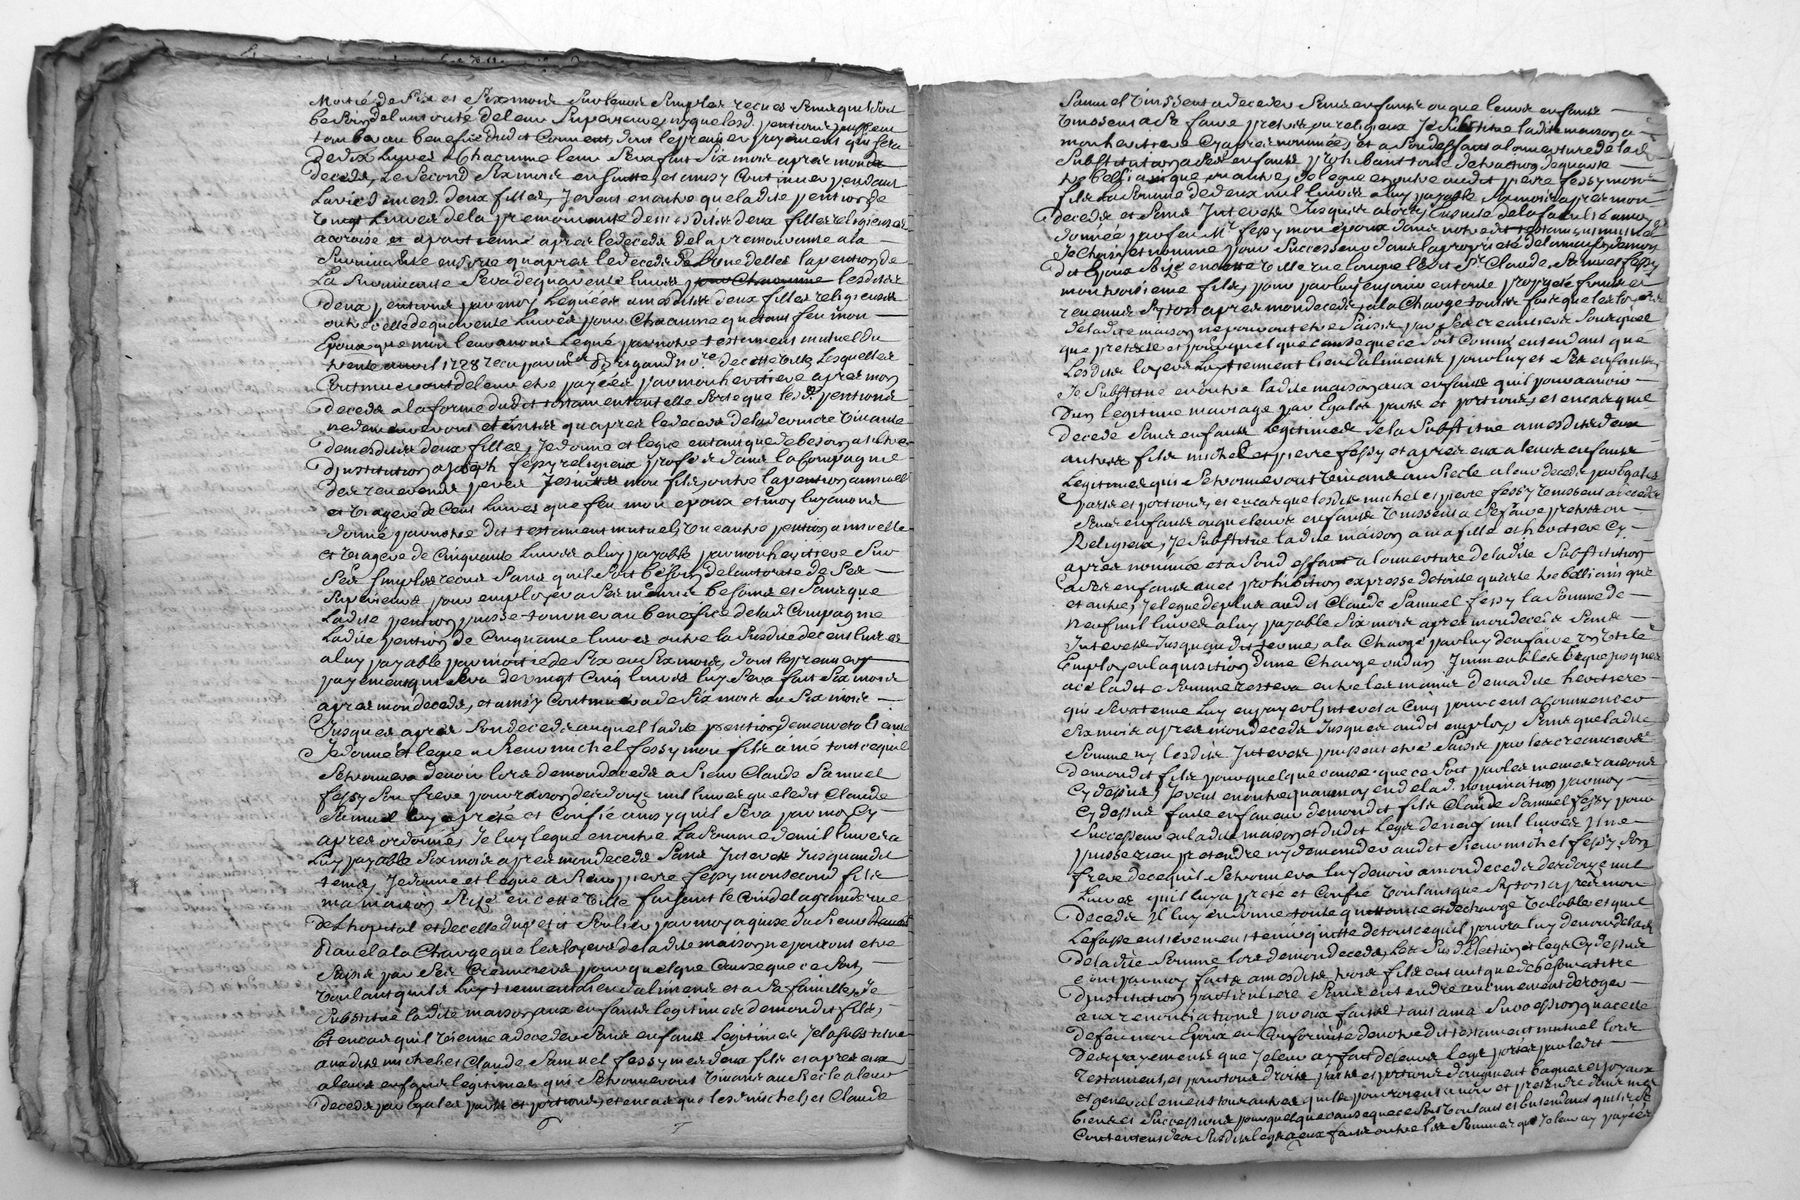 Moitié de Six en Six mois Sur leurs Simples recues Sans quil Soit
besoin de lautorité de leur Superieure, ny que lesd. pentions puissent
tomber au benefice dudit Couvent, dont le premier payement qui Sera
de dix Livres a Chacunne leur Sera fait Six mois apres mon
decedz, Le Second Six mois en suitte, et ainsy Continuer pendant
La vie de mesd. deux filles, Je veus en outre que ladite pention de
Vingt Livres de la premourante de mes dites deux filles religieuses
acroisse et apartienne apres le decedz de la premourante a la
Survivante en sorte quapres le decedz de Lune delles la pention de
La Survivante Sera de quarente Livres lesdites
deux pentions par moy Leguées a mesdites deux filles religieuses
outre Celle de quarente Livres pour Chacunne que tant feu mon
Epoux que moy leur avons Legué par notre testament mutuel du
trente avril 1728 recu par Me Brigaud nore de cette Ville Lesquelles
Continueront de leur etre payées par mon heritiere apres mon
decedz a la forme dudit testament en telle Sorte que lesd. pentions
ne demeureront eteintes quapres le decedz de la derniere Vivante
de mesdites deux filles, Je donne et legue en tant que de besoin a titre
dinstitution a Joseph fessy religieux profes dans la Compagnie
des reverends peres Jesuittes mon fils, outre la pention annuelle
et Viagere de Cent Livres que feu mon epoux et moy luy avons
donné par notre dit testament mutuel, Une autre pention annuelle
et Viagere de Cinquante Livres a luy payable par mon heritiere Sur
Ses Simples recus Sans quil Soit besoin de lautorité de Ses
Superieurs pour employer a Ses menus besoins et Sans que
Ladite pention puisse tourner au benefice de lad. Compagnie
Ladite pention de Cinquante Livres outre la Susdite de cent livres
a luy payable par moitié de Six en Six mois, dont le premier
payement qui Sera de vingt Cinq Livres luy Sera fait Six mois
apres mon decedz, et ainsy Continuera de Six mois en Six mois
Jusques apres Son decedz auquel ladite pention demeurera Eteinte
Je donne et legue a Sieur michel fessy mon fils ainé tout ce quil
Se trouvera devoir lors de mon decedz a Sieur Claude Samuel
fessy Son frere pour raison des douze mil livres que ledit Claude
Samuel luy a preté et Confié ainsy quil Sera par moy Cy
apres ordonné, Je luy legue en outre La Somme de mil livres a
Luy payable Six mois apres mon decedz Sans Interests Jusquaudit
tems, Je donne et legue a Sieur pierre fessy mon second fils
ma maison Sizé en cette Ville faisant le Coin de la grande rue
de Lhopital et de celle du petit Soulier par moy aquise du Sieur
Ravel a la Charge que les loyers de ladite maison ne pourront etre
Saisis par Ses Creanciers pour quelque Cause que ce Soit
Voulant quils Luy tiennent lieu dalimens et a Sa famille, Je
Substitue ladite maison aux enfants legitimes de mondit fils,
Et en cas quil Vienne a deceder Sans enfants Legitimes Je la Substitue
auxdits michel et Claude Samuel fessy mes deux fils et apres eux
a leurs enfants legitimes qui Se trouveront Vivants au Siecle a leur
decedz par Egales parts et portions, et en cas que lesd. michel et Claude
Samuel Vinssent a deceder Sans enfants ou que leurs enfants
Vinssent a Se faire pretres ou religieux Je Substitue ladite maison a
mon heritiere Cy apres nommée, et a Son deffaut a louverture de lad.
Substitution a Ses enfants prohibant toute detraction de quarte
trebellianique ou autre, Je legue en outre audit pierre fessy mon
fils La Somme de deux mil livres a luy payable Six mois apres mon
decedz et Sans Interests Jusques alors, Ensuite de la faculté a moy
donnée par feu Mr fessy mon epoux dans notre dit testament mutuel
Je Choisis et nomme pour Successeur dans la proprieté de la maison de mon
dit Epoux Sizé en cette Ville rue longue ledit Sr. Claude Samuel fessy
mon troisieme fils, pour par luy en jouir en toute proprieté fonds et
revenus Sitost apres mon decedz, a la Charge toutes fois que les loyers
de ladite maison ne pourront etre Saisis par Ses creanciers Sous quel
que pretexte et pour quelque cause que ce Soit Comme entendant que
Lesdits loyers Luy tiennent lieu dalimens pour luy et Ses enfants,
Je Substitue en outre ladite maison aux enfants quil pourra avoir
Dun legitime mariage par Egales parts et portions, et en cas que
decede Sans enfants Legitimes Je la Substitue a mesdits deux
autres fils michel et pierre fessy et apres eux a leurs enfants
Legitimes qui Se trouveront Vivants au Siecle a leur decedz par Egales
parts et portions, et en cas que lesdits michel et pierre fessy Vinssent a deceder
Sans enfants ou que leurs enfants Vinssent a Se faire pretres ou
Religieux, Je Substitue ladite maison a ma fille et heritiere Cy
apres nommée et a Son deffaut a louverture de ladite Substitution
a Ses enfants avec prohibition expresse de toute quarte trebellianique
et autre, Je legue de plus audit Claude Samuel fessy la Somme de
neuf mil livres a luy payable Six mois apres mon decedz Sans
Interests Jusquaudit terme, a la Charge par luy den faire un Utile
Employ en laquisition dune Charge ou dun Immeuble et Jusques
a ce ladite Somme restera entre les mains de madite heritiere
qui Sera tenue Luy en payer Linterest a Cinq pour cent a Commencer
Six mois apres mon decedz Jusques audit employ Sans que ladite
Somme ny lesdits Interests puissent etre Saisis par les creanciers
de mondit fils pour quelque cause que ce Soit par les memes raisons
Cy dessus, Je veus en outre quau moyen de lad. nomination par moy
Cy dessus faite en faveur de mondit fils Claude Samuel fessy pour
Successeur en ladite maison et dudit Legs de neuf mil livres Il ne
puisse rien pretendre ny demander audit Sieur michel fessy Son
frere de ce quil Se trouvera luy devoir a mon decedz des douze mil
Livres quil luy a preté et Confié Voulant que Sitost apres mon
decedz Il luy en donne toute quittance et decharge Valable et quil
Le fasse entierement tenir quitte de tout ce quil pourra luy devoir de lad.
de ladite Somme lors de mon decedz, Les Susd. Election et legs Cy dessus
etant par moy faits a mesdits trois fils en tant que de besoin a titre
dinstitution particuliere Sans entendre aucunement deroger
aux renonciations par eux faites tant a ma Succession qua celle
de feu mon Epoux en Conformité de notre dit testament mutuel lors
des payements que Je leur ay fait de leurs legs portés par ledit
Testament, et pour tous droits, parts et portions daugment bagues et joyaux
et generalement tous autres quils pourroient avoir et pretendre dans mes
biens et Successions pour quelque cause que ce Soit Voulant et Entendant quils se
Contentent des Susdits legs a eux faits outre les Sommes que Je leur ay payées